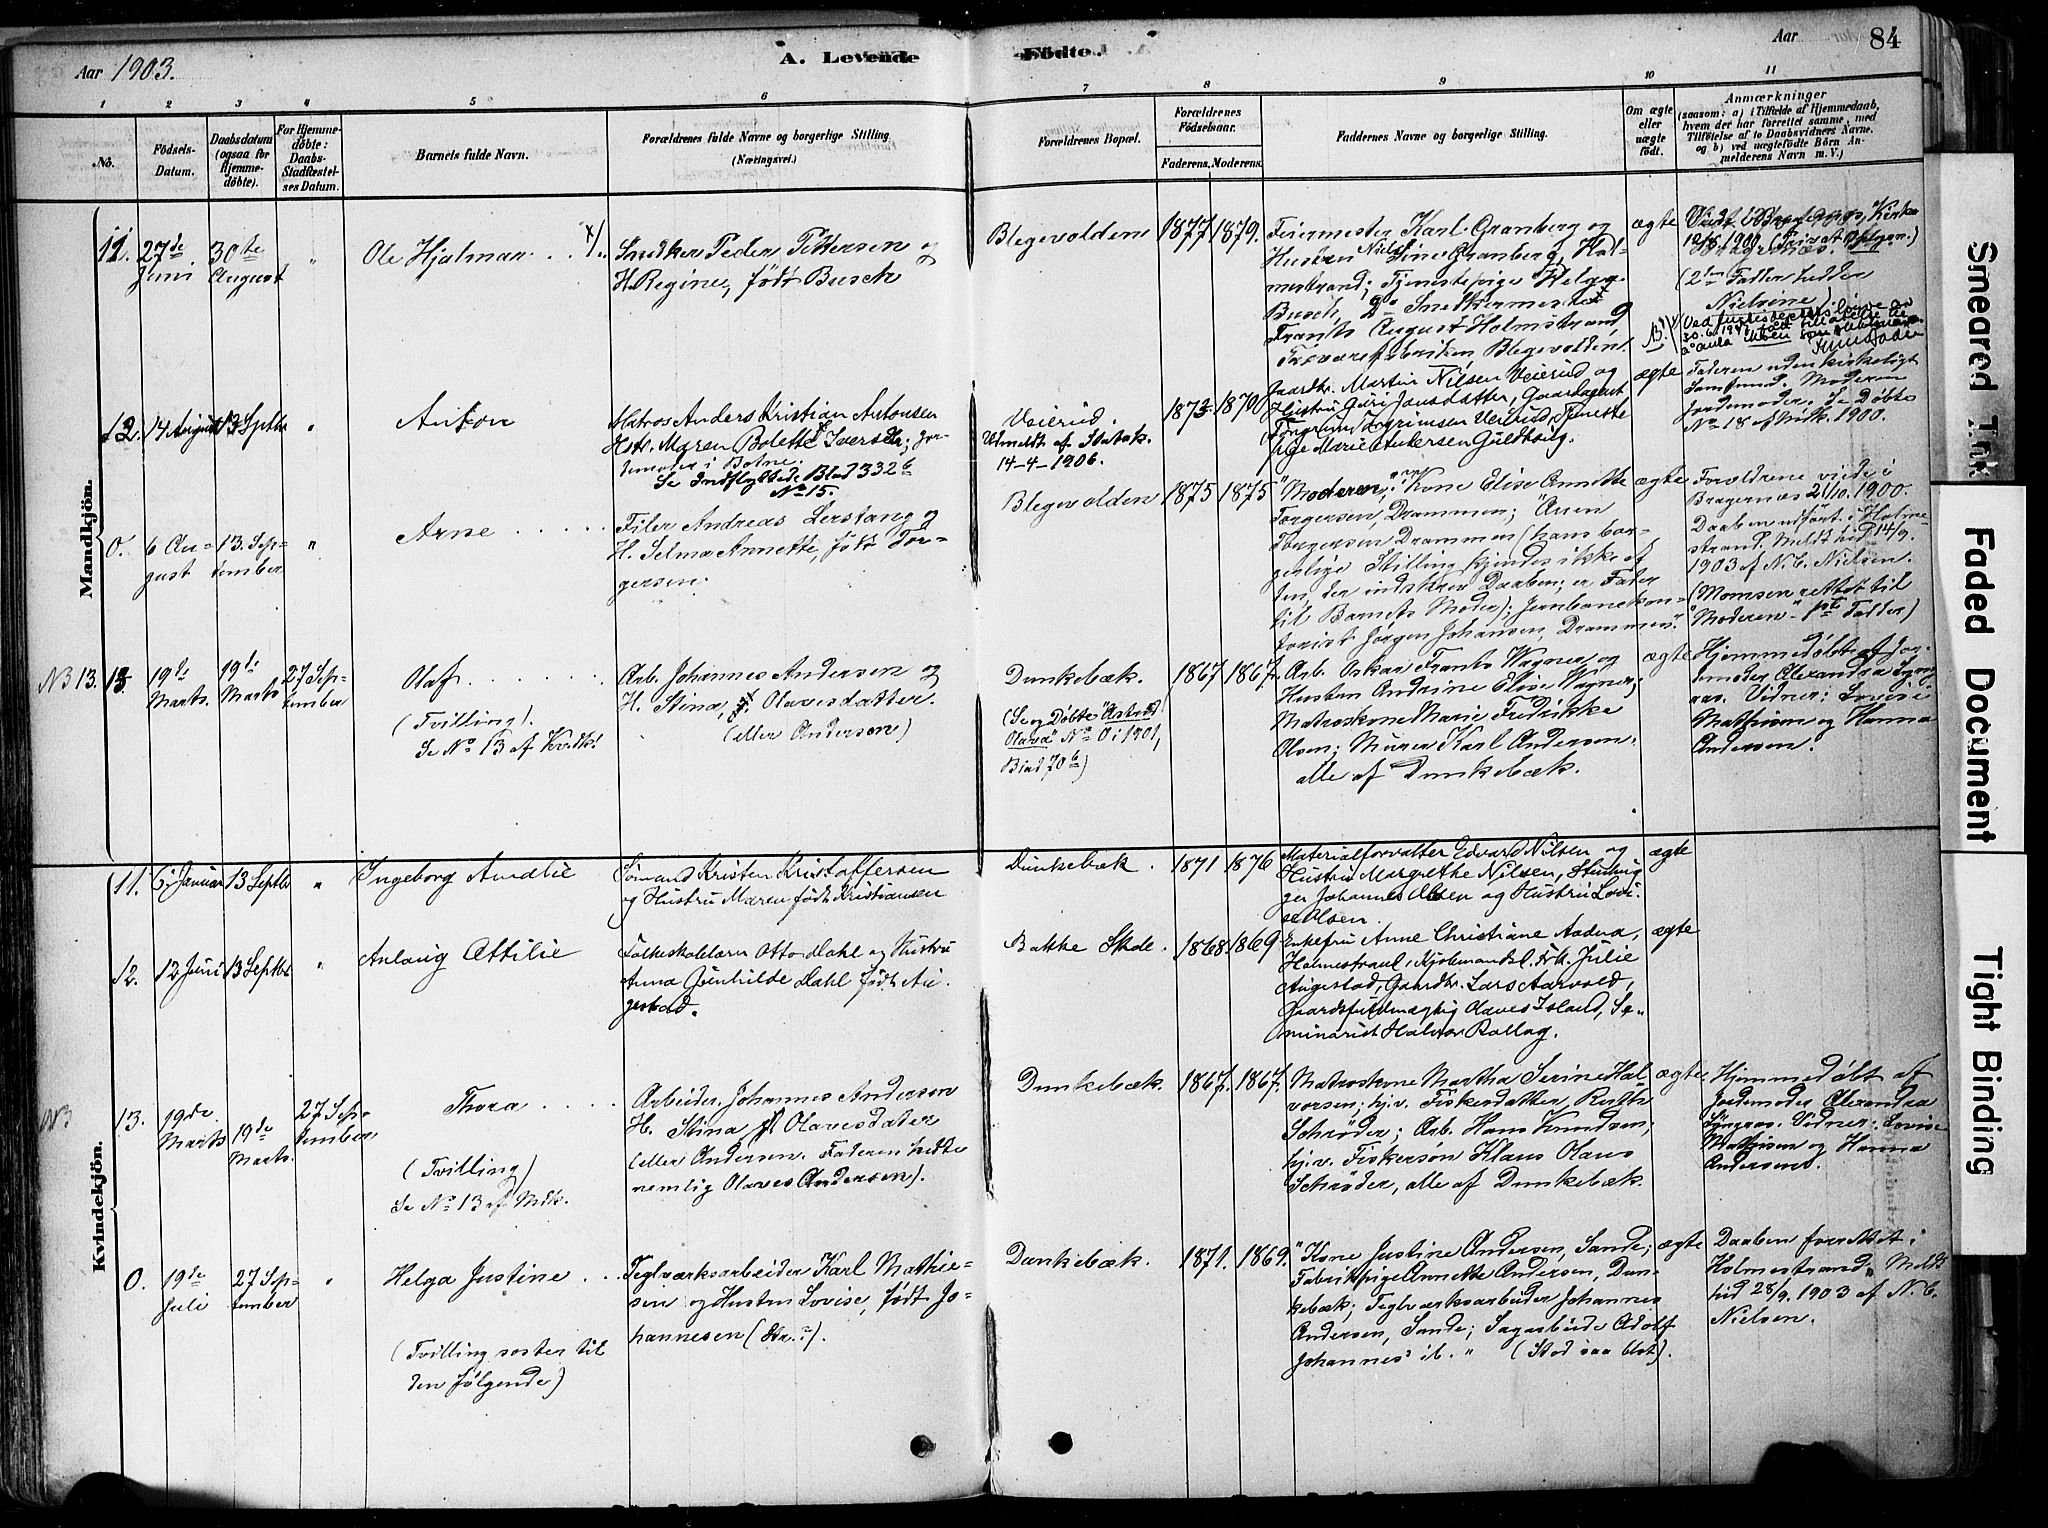 Aar 1903.
A. Levende Fødte.
Aar
84
1 2 3 4 5 6 7 8 9 10 11
No.
Fødsels-Datum.
Daabsdatum (ogsaa for Hjemmedøbte).
For Hjemmedøbte: Daabs-Stadfæstelses Datum.
Barnets fulde Navn.
Forældrenes fulde Navne og borgerlige Stilling.
(Næringsvei.)
Forældrenes Bopæl.
Forældrenes Fødselsaar.
Faderens. Moderens.
Faddernes Navne og borgerlige Stilling.
Om ægte eller uægte født.
Anmærkninger
(saasom: a) i Tilfælde af Hjemmedaab, hvem der har forrettet samme, med Tilføielse af to Daabsvidners Navne, og b) ved uægtefødte Børn Anmelderens Navn m. V.)
Mandkjøn.
11. 27de Juni 30te August " Ole Hjalmar
Snedker Peder Pettersen og
H. Regine, født Busch
Blegevolden 1877 1879.
Feiermester Karl Granberg og
Hustru Nielsine Granberg, Hol-
mestrand; Tjenestepige Helga
Busch, Do Snedkermester
Frants August Holmstrand,
Trævarefabriken Blegevolden.
ægte
(2den Fadder hedder
Nielsine)
12. 14 August 13 Septbr " Anton
Matros Anders Kristian Antonsen
Hstr. Maren Bolette Iversdtr; Jor-
demoder i Botne.
Se Indflyttede Blad 332b
No 15.
Veierud.
Utmeldt af Statsk.
14-4-1906.
1873 1870
Gaardbr. Martin Nilsen Veierud og
Hustru Guri Jonsdatter, Gaardagent
Torgrim Torgrimsen Veierud, Tjeneste
pige Marie Andersen Guldhaug.
ægte
Faderen udenkirkeligt
Samfund. Moderen
Jordemoder. Se Døbte
No 18 af Mdk. 1900.
0. 6 Au-
gust 13. Sep-
tember " Arne
Filer Andreas Lerstang og
H. Selma Annette, født Tor-
gersen.
Blegevolden 1875 1875
"Moderen," Kone Elise Annette
Torgersen, Drammen; Aven
Torgersen Drammen (hans bor-
gerlige Stilling kjendes ikke af
den, der indskrev Daaben; er Fader
til Barnets Moder); Jernbanekon-
torist Jørgen Johansen, Drammen."
ægte
Forældrene viede i
Bragernes 21/10. 1900.
Daaben udført i Holme-
strand. Meldt hid 14/9.
1903 af N.C. Nielsen.
(Momsen rettet til
"Moderen" Fadder)
NB 13. 13. 19de Marts. 19de Marts 27 Sep-
tember Olaf
(Tvilling).
Se No 13 af Kvdk.
Arb. Johannes Andersen og
H. Stina, f. Olavesdatter.
(eller Andersen)
Dunkebæk.
(Se og Døbte "Astrid
Olava" No 0 i 1901,
Blad 70b)
1867 1867.
Arb. Oskar Frants Wagner og
Hustru Andrine Elise Wagner;
Matroskone Marie Fredrikke
Olsen; Murer Karl Andersen.
alle af Dunkebæk.
ægte
Hjemmedøbt af Jor-
demoder Alexandra Lyng-
aas. Vidner: Lovise
Mathisen og Hanna
Andersen.
Kvindekjøn.
11. 6 Januar 13 Septbr " Ingeborg Amalie
Sømand Kristen Kristoffersen
og Hustru Maren født Kristiansen
Dunkebæk. 1871 1876
Materialforvalter Edvard Nilsen og
Hustru Margrethe Nilsen, Stenhug
ger Johannes Olsen og Hustru Lovi-
se Olsen.
ægte
12. 12 Juni 13 Septbr " Anlaug Ottilie
Folkeskolelærer Otto Dahl og Hustru
Anna Gunhilde Dahl født Au-
gestad.
Bakke Skole. 1868. 1869
Enkefru Anne Christiane Aadna,
Holmestrand, Kjøbmandsl. Frk. Julie
Augestad, Gaardbr. Lars Aarvold,
Gaardsfuldmægtig Olaves Island, Se-
minarist Halvor Rollag.
ægte
NB 13. 19de Marts 19de Marts. 27 Sep-
tember Thora
(Tvilling)
Se No 13 af Mdk.
Arbeider Johannes Andersen
H. Stina f. Olavesdatter
(eller Andersen. Faderen hedte
nemlig Olaves Andersen).
Dunkebæk. 1867. 1867.
Matroskone Martha Serine Hal-
vorsen; hjv. Fiskerdatter Ruth
Schrøder; Arb. Hans Knudsen;
hjv. Fiskersøn Klaus Olaus
Schrøder, alle af Dunkebæk.
ægte
Hjemmedøbt af
Jordemoder Alexandra
Lyngaas. Vidner: Lovise
Mathisen og Hanna
Andersen.
0. 19de Juli 27 Sep-
tember " Helga Justine
(Tvillingsøster til
den følgende)
Teglværksarbeider Karl Mathie-
sen og Hustru Lovise, født Jo-
hannesen (Str.?).
Dunkebæk. 1871. 1869.
"Kone Justine Andersen, Sande;
Fabrikpige Annette Andersen, Dun-
kebæk; Teglværksarbeider Johannes
Andersen, Sande; Sagarbeide Adolf
Johannes' ib. " (Stod saa blot).
ægte
Daaben forrettet i
Holmestrand. Meldt
hid 28/9. 1903 af N.C.
Nielsen.
Smeared Ink
Faded Document
Tight Binding